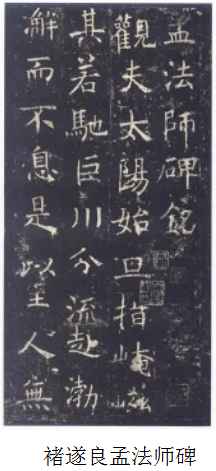 孟法師碑銘
觀夫太陽始旦指崦嵫
其若馳巨川分流赴渤
澥而不息是以至人無
褚遂良孟法师碑